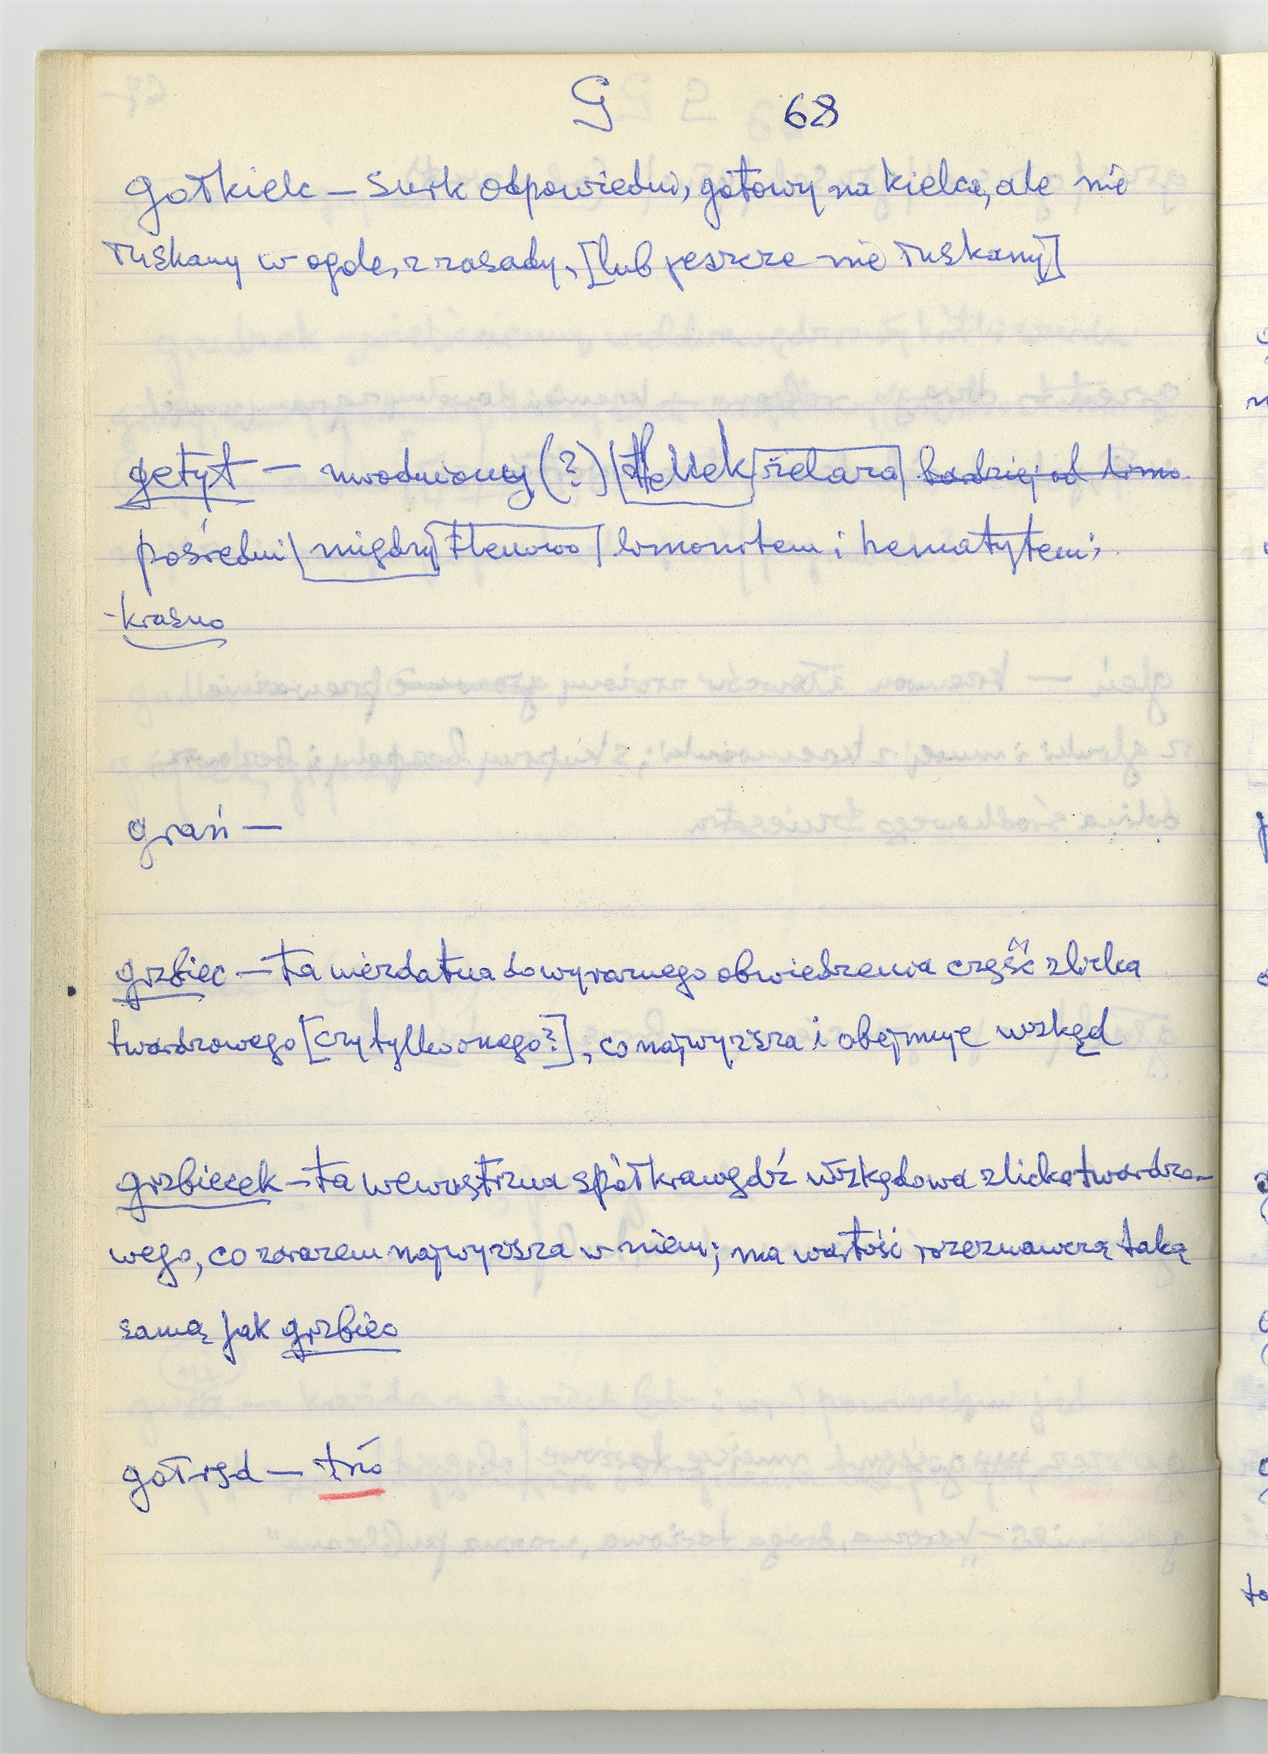 G 68
gotkielc — surk odpowiedni, gotowy na kielca, ale nie
łuskany w ogóle, z zasady, [lub jeszcze nie łuskany]
getyt — uwodniony (?) tlenek żelaza bardziej od limo
pośredni między tlenowo limonitem i hematytem;
-krasno
grań —
grzbiec — ta niezdatna do wyraznego obwiedzenia część zlicka
twardzowego [czy tylko onego?], co najwyższa i obejmuje wzkęd
grzbiecek — ta wewnętrzna spółkrawędź wzkędowa zlicka twardzo-
wego, co zarazem najwyższa w niem; ma wartość rozeznawczą taką
samą jak grzbiec
gotrsd — trio